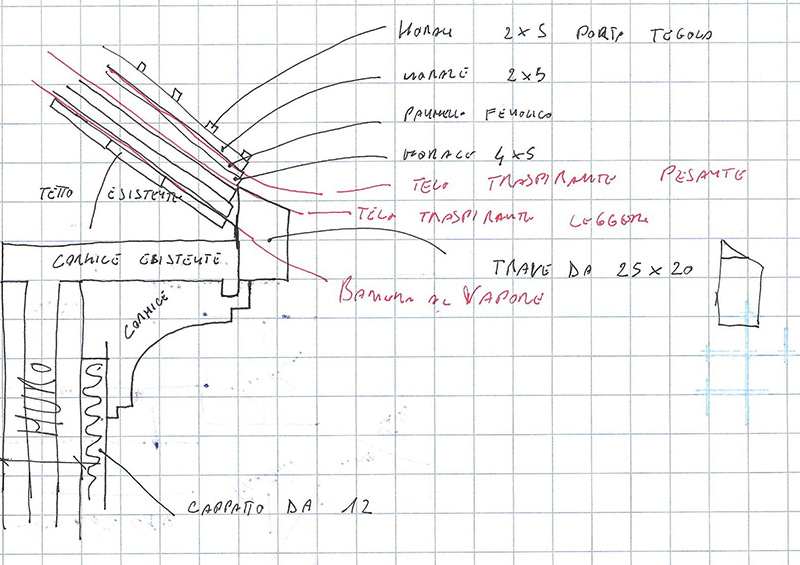 MORALI 2x5 PORTA TEGOLA
MORALE 2x5
PANNELLO FENOLICO
MORALE 4x5
TELO TRASPIRANTE PESANTE
TETTO ESISTENTE
TELO TRASPIRANTE LEGGERO
CORNICE ESISTENTE
TRAVE DA 25x20
BARRIERA AL VAPORE
CORNICE
MURO
CAPPOTTO DA 12